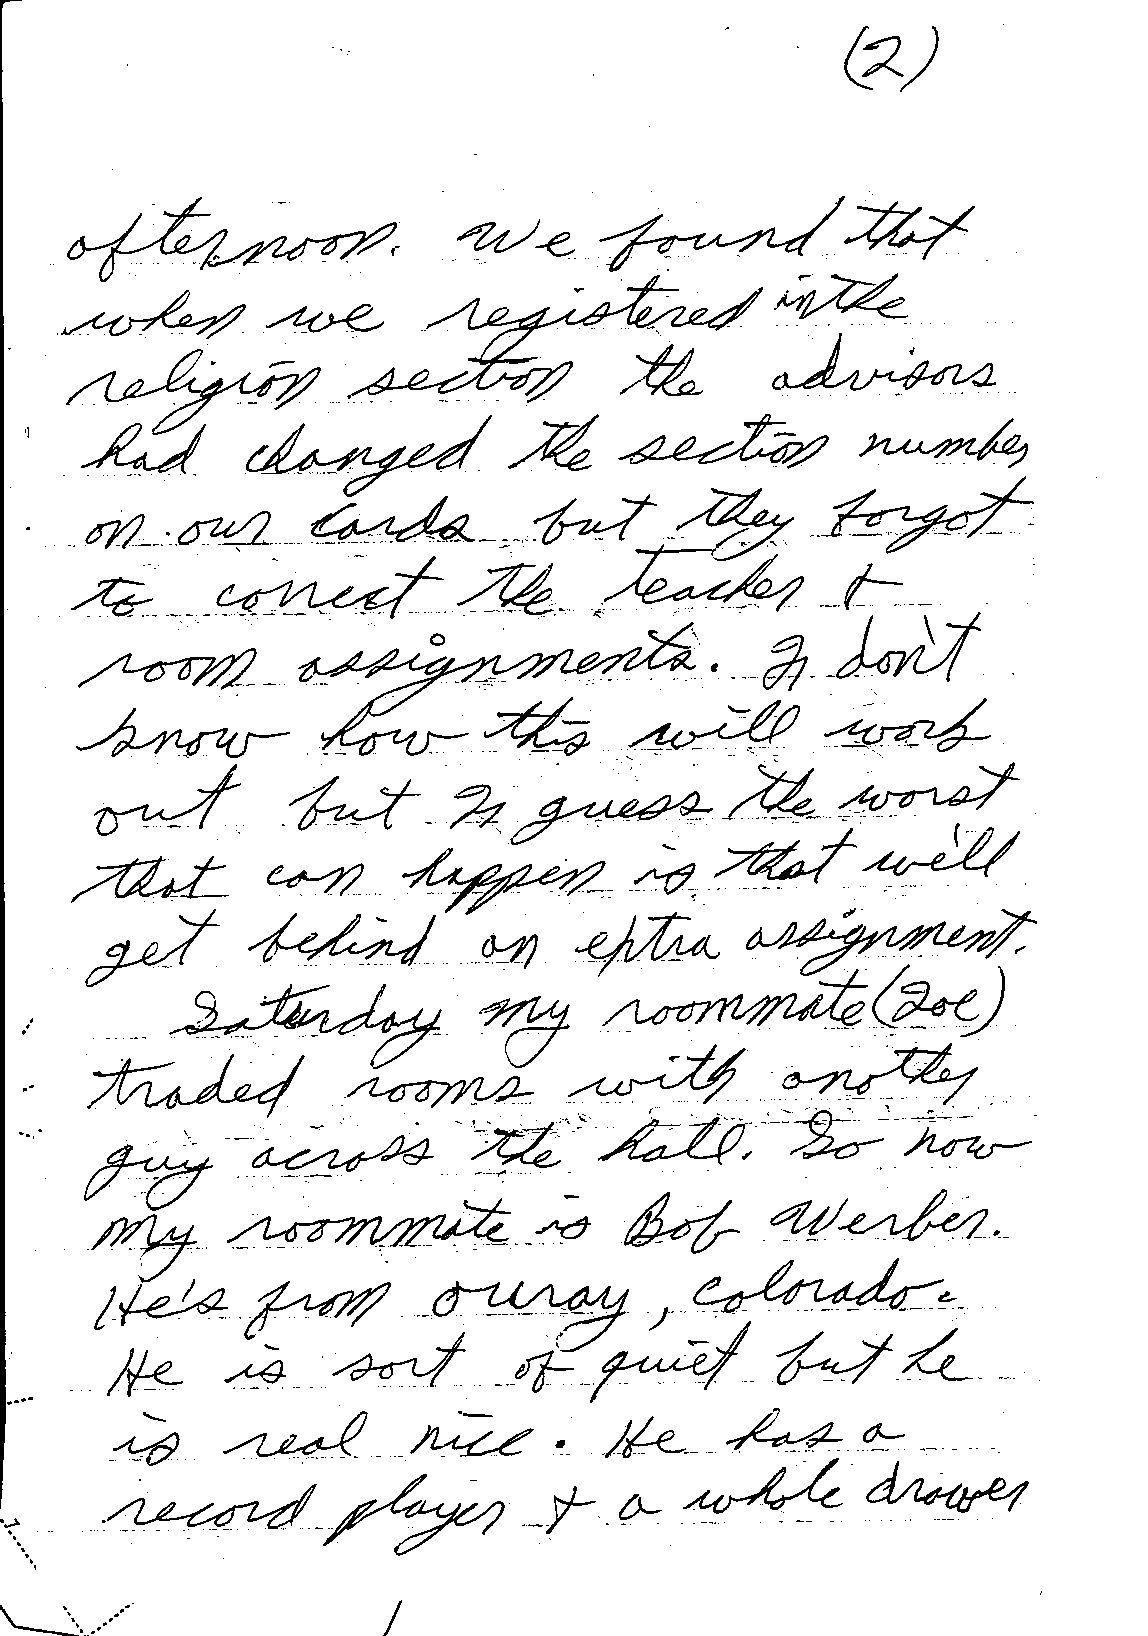 (2)
afternoon. We found that
when we registered in the
religion section the advisors
had changed the section number
on our cards but they forgot
to correct the teacher &
room assignments. I don't
know how this will work
out but I guess the worst
that can happen is that we'll
get behind an extra assignment.
Saturday my roommate (Joe)
traded rooms with another
guy across the hall. So now
my roommate is Bob Werber.
He's from Ouray, Colorado.
He is sort of quiet but he
is real nice. He has a
record player & a whole drawer